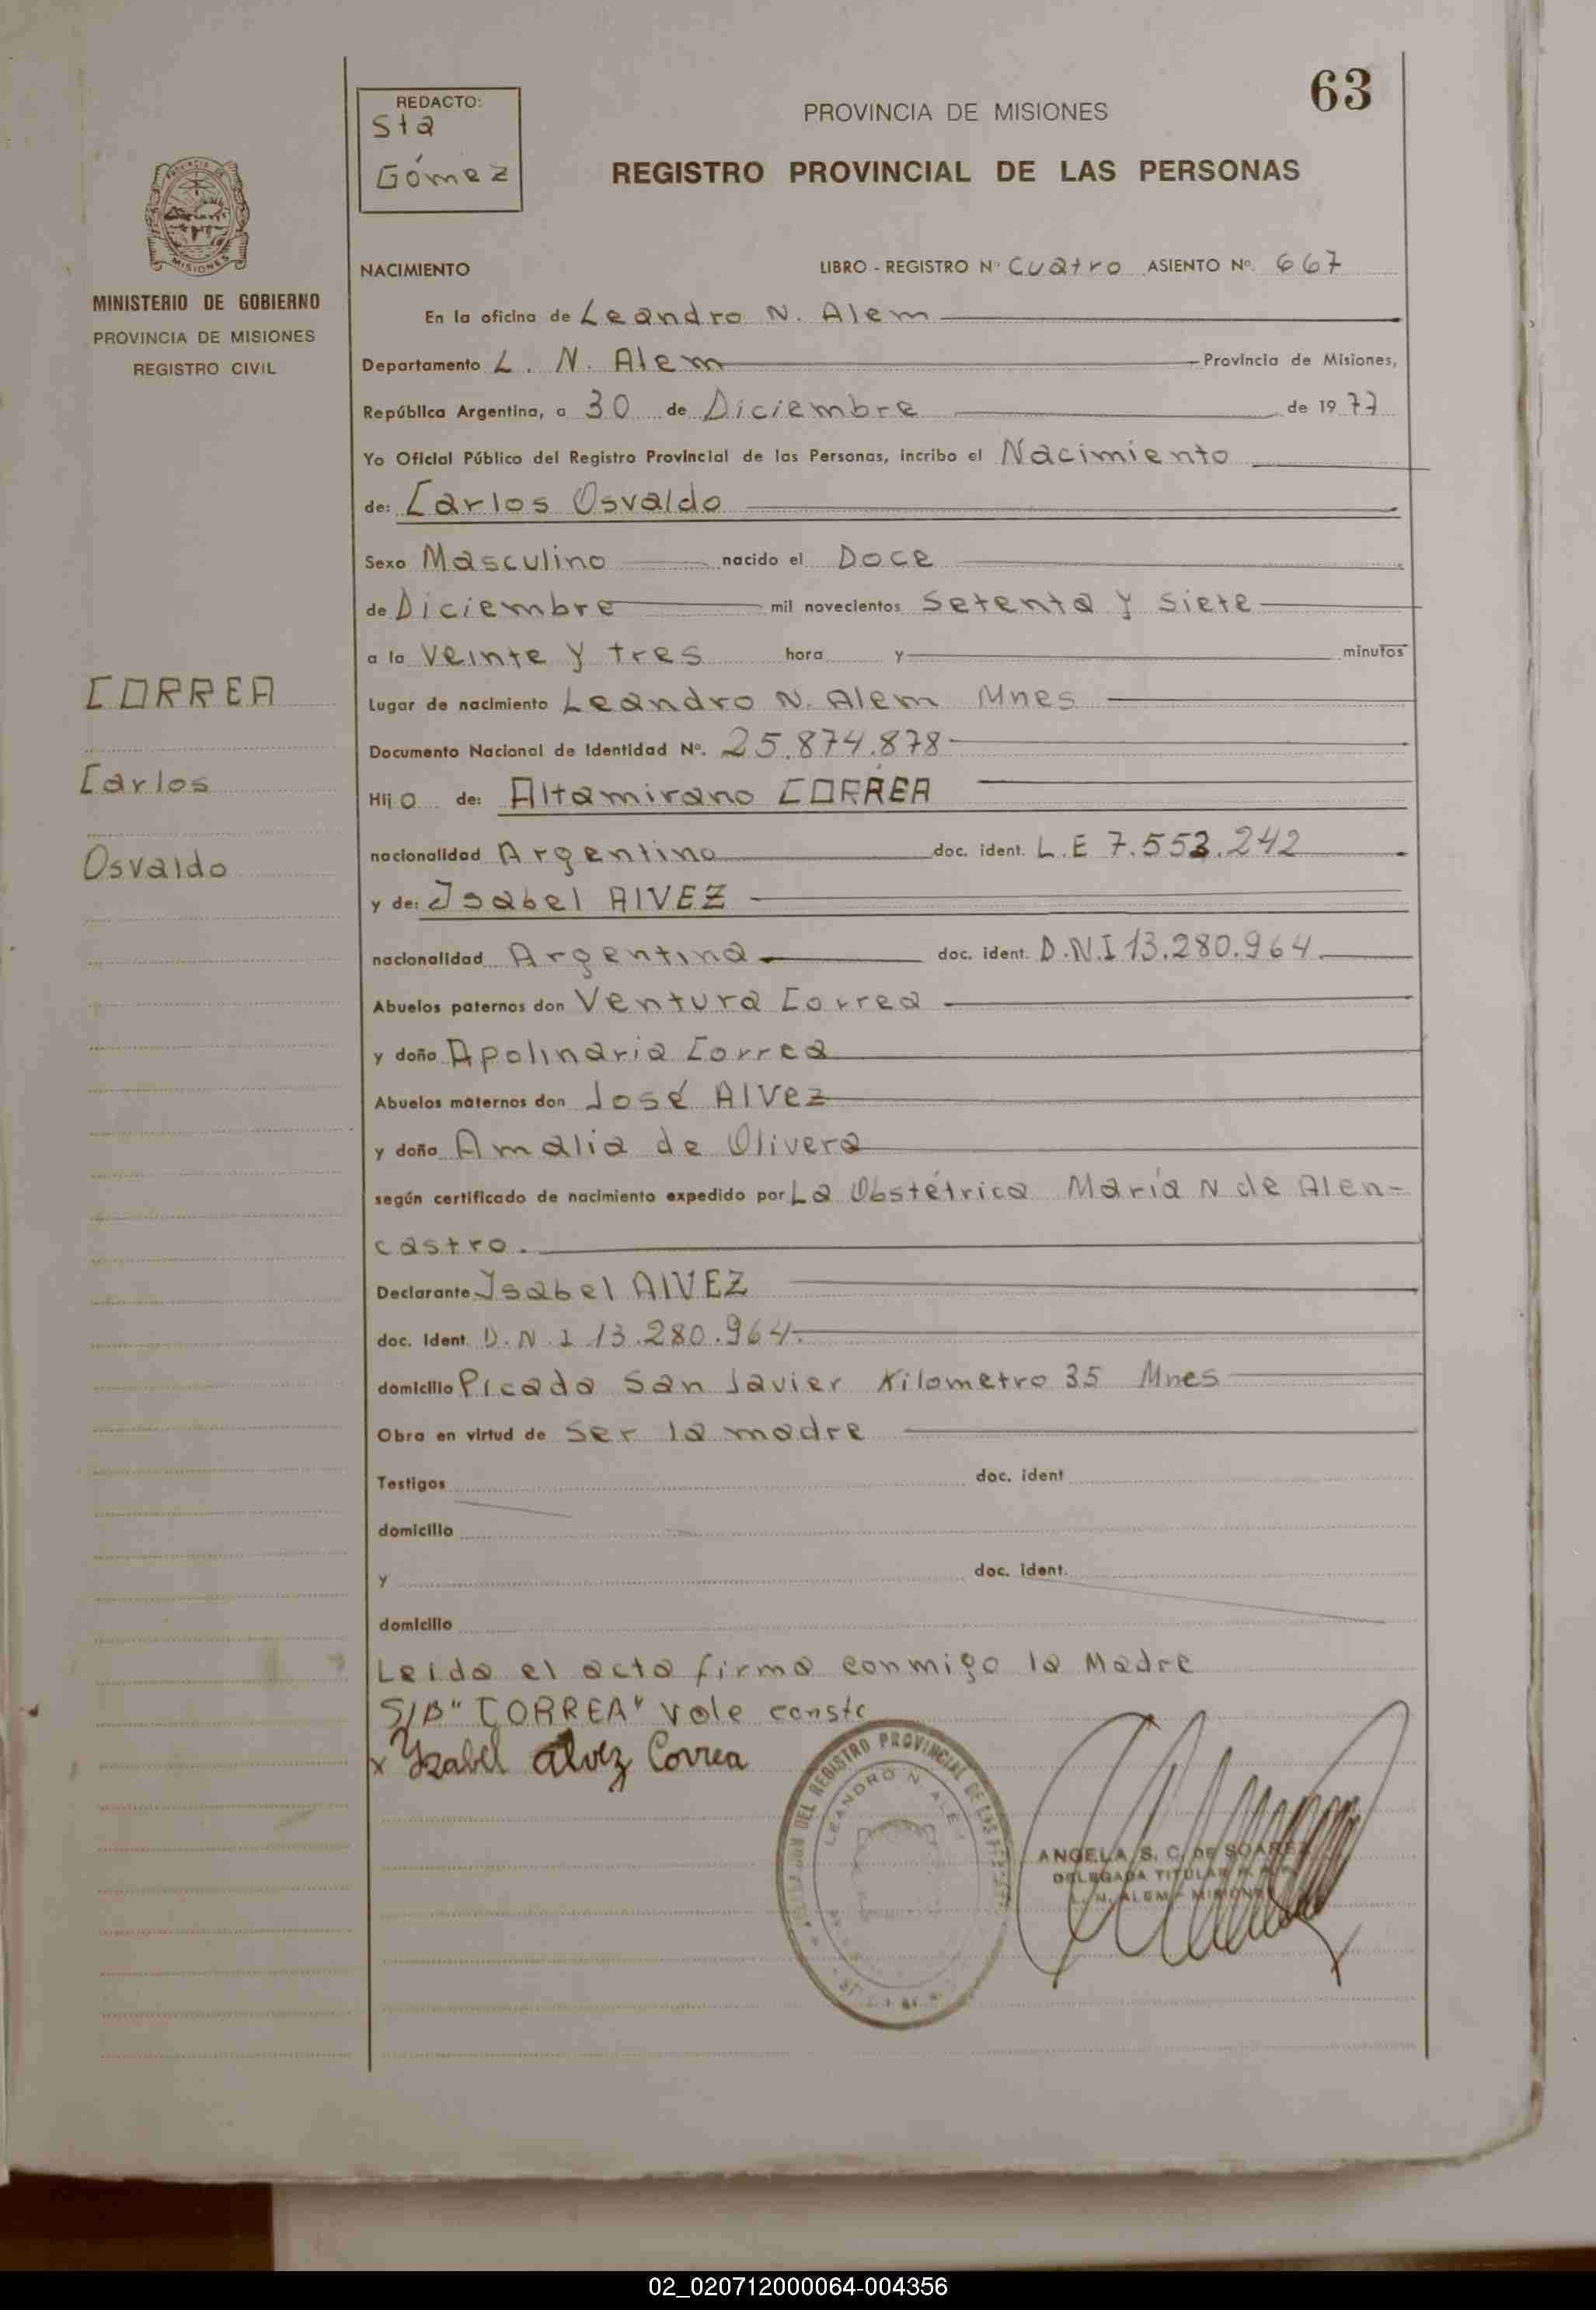 63
REDACTO:
Sta
Gómez
PROVINCIA DE MISIONES
REGISTRO PROVINCIAL DE LAS PERSONAS
MISIONES
MINISTERIO DE GOBIERNO
PROVINCIA DE MISIONES
REGISTRO CIVIL
NACIMIENTO LIBRO - REGISTRO Nº Cuatro ASIENTO Nº. 667
En la oficina de Leandro N. Alem
Departamento L. N. Alem Provincia de Misiones,
República Argentina, a 30 de Diciembre de 1977
Yo Oficial Público del Registro Provincial de las Personas, incribo el Nacimiento
de: Carlos Osvaldo
Sexo Masculino nacido el Doce
de Diciembre mil novecientos Setenta y Siete
a la Veinte y tres hora y minutos
Lugar de nacimiento Leandro N. Alem Mnes
Documento Nacional de Identidad Nº. 25.874.878
Hijo de: Altamirano CORREA
nacionalidad Argentino doc. ident. L.E 7.553.242
y de: Isabel AlVEZ
nacionalidad Argentina doc. ident. D.N.I 13.280.964
Abuelos paternos don Ventura Correa
y doña Apolinaria Correa
Abuelos maternos don José Alvez
y doña Amalia de Olivera
según certificado de nacimiento expedido por La Obstétrica María N de Alen-
castro.
Declarante Isabel AlVEZ
doc. Ident. D.N.I 13.280.964.
domicilio Picada San Javier Kilometro 35 Mnes
Obra en virtud de Ser la madre
Testigos doc. ident
domicilio
y doc. ident.
domicilio
Leida el acta firma conmigo la Madre
S/B "CORREA" Vale conste
x Yzabel alvez Correa
CORREA
Carlos
Osvaldo
DEL REGISTRO PROVINCIAL DE LAS
LEANDRO N. ALEM
ANGELA S. C. DE SOAREZ
DELEGADA TITULAR
L. N. ALEM - MISIONES
02_020712000064-004356